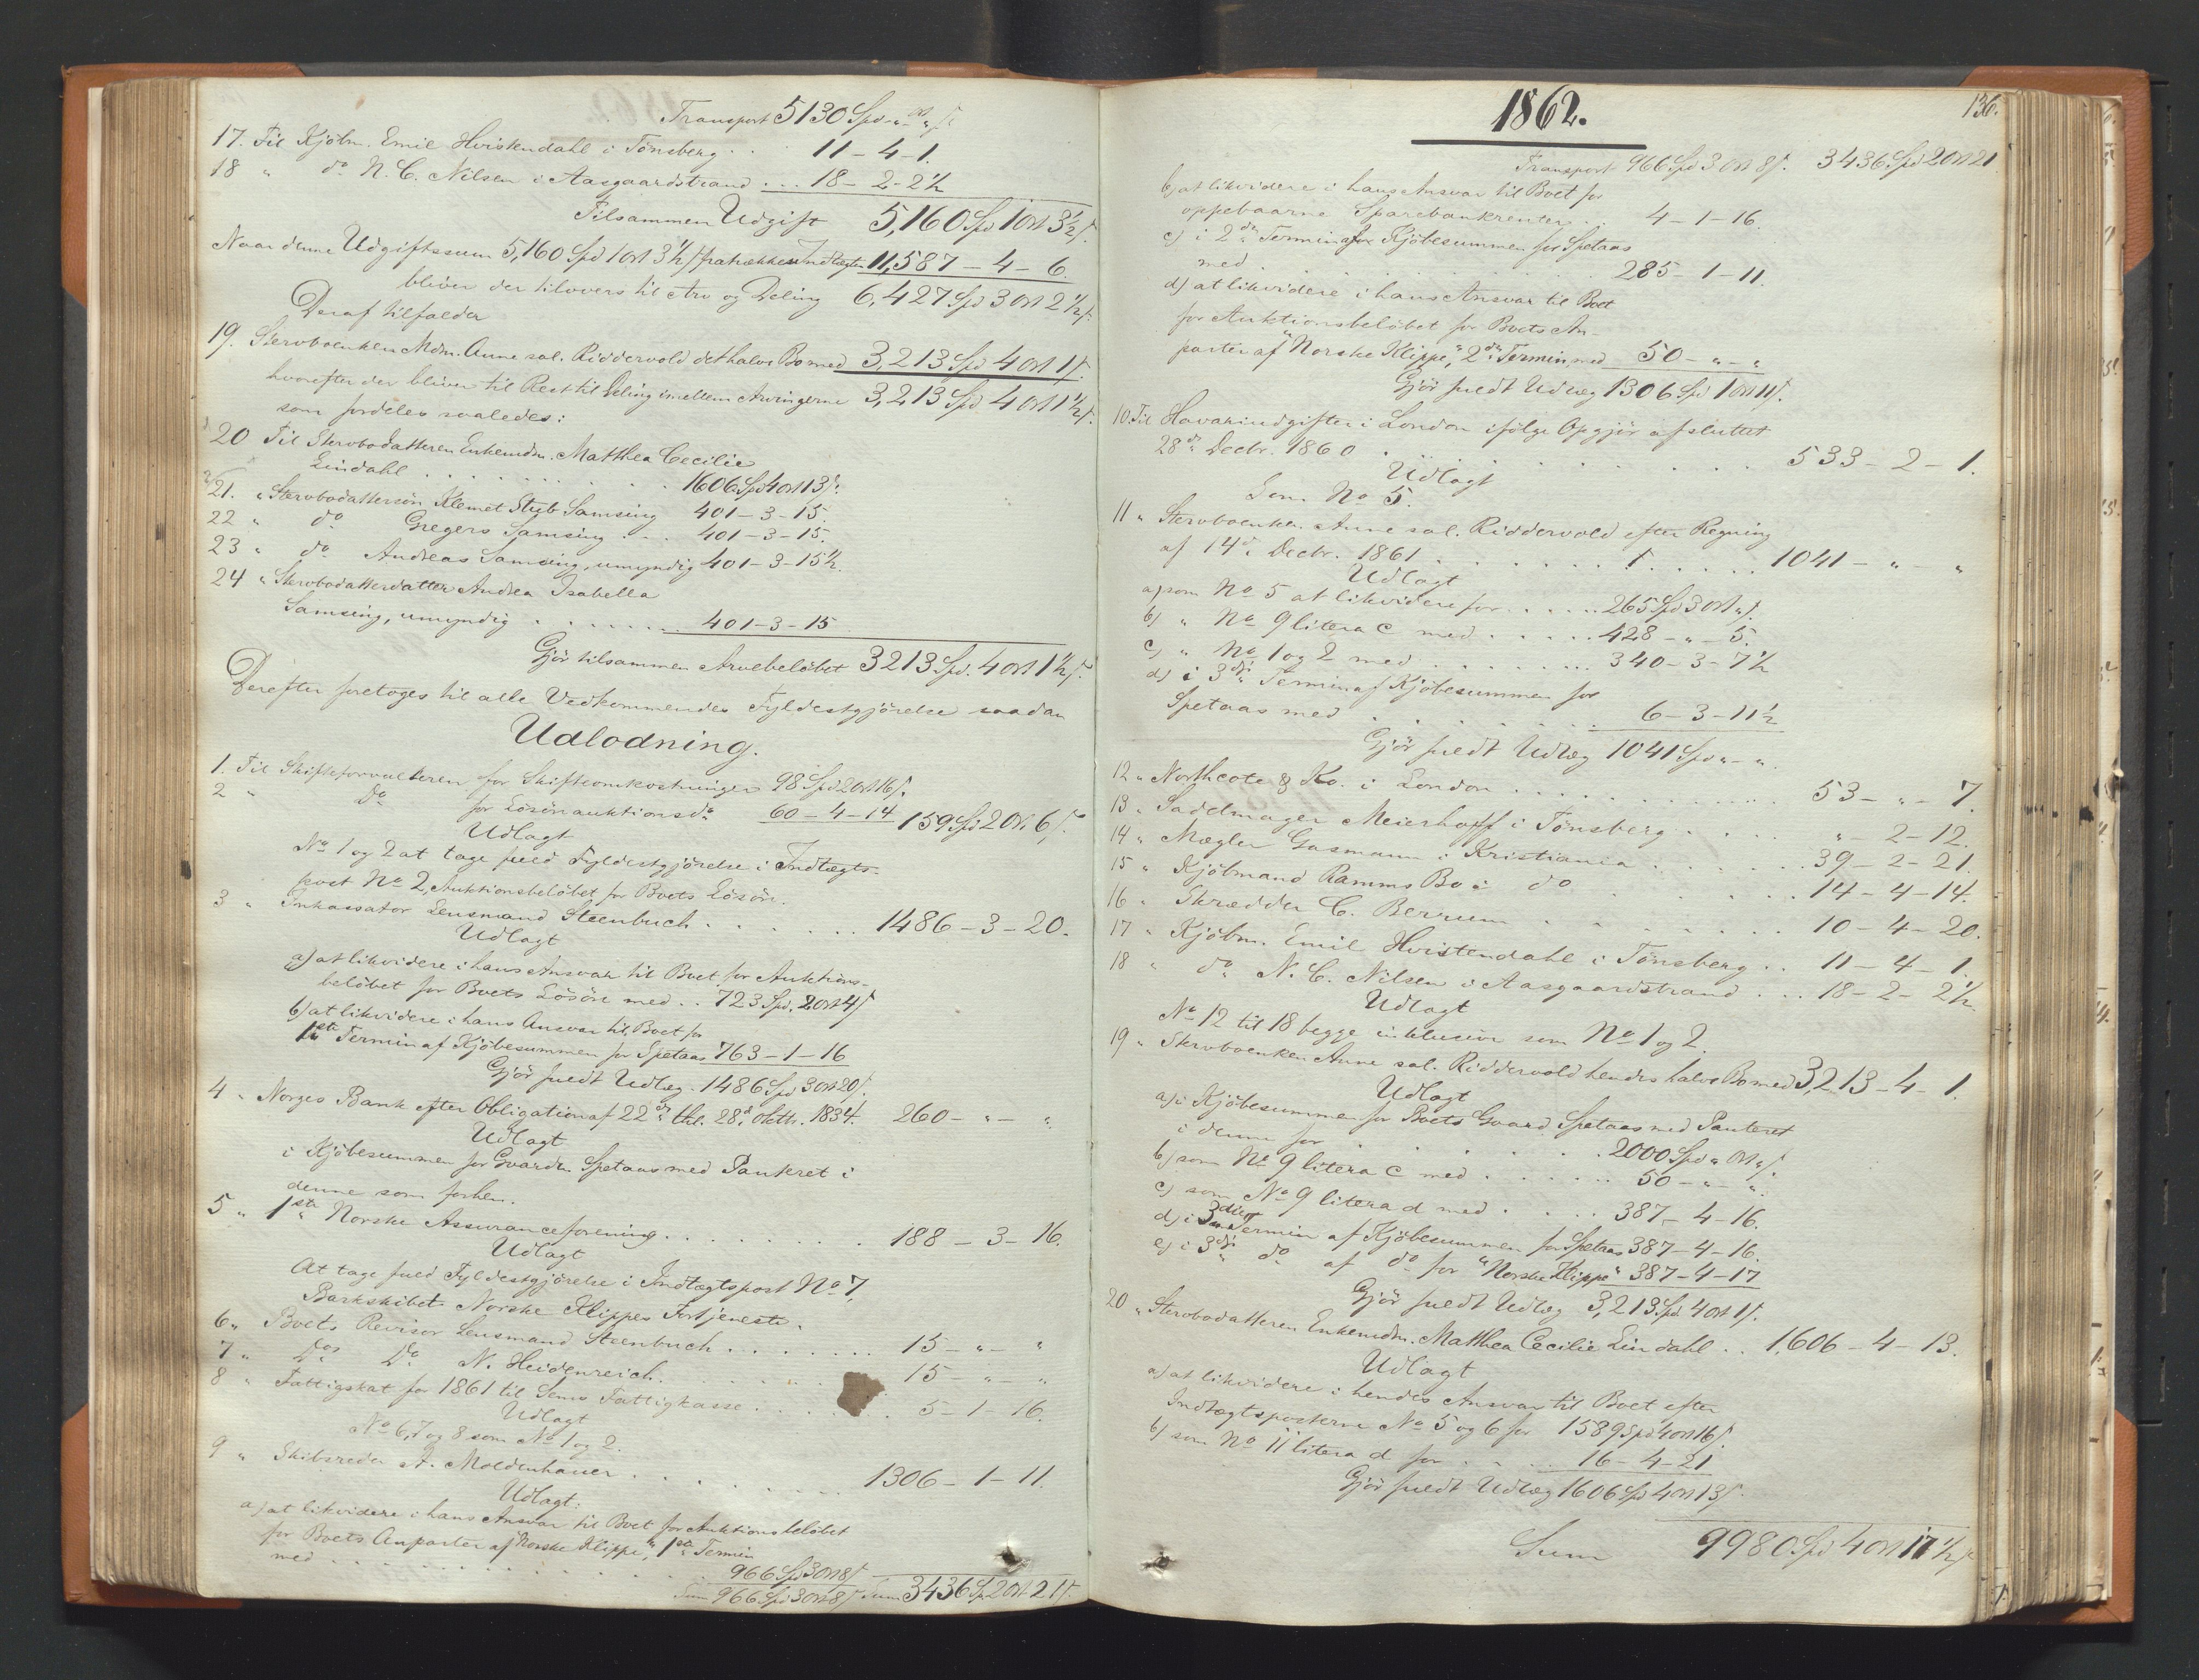 Transport 5130 Spd - " - Ort " ſ.
17. Til Kjöbm. Emil Hvistendahl i Tönsberg . . 11 - 4 - 1.
18 " do N. C. Nilsen i Aasgaardstrand . . . 18 - 2 - 2½
Tilsammen Udgift 5,160 Spd 1 Ort 3½ ſ.
Naar denne Udgiftssum 5,160 Spd 1 Ort 3½ ſ fratrækkes Indtægten 11,587 - 4 - 6.
bliver der tilovers til Arv og Deling 6,427 Spd 3 Ort 2½ ſ.
Deraf tilfalder
19. Stervboenken Mdm. Anne sal. Riddervold det halve Bo med 3,213 Spd 4 Ort 1 ſ.
hvorefter der bliver til Rest til Deling imellem Arvingerne 3,213 Spd 4 Ort 1½ ſ.
som fordeles saaledes:
20 Til Stervbodatteren Enkemdm. Matthea Cecilie
Lindahl . . . . . . . . . 1606 Spd 4 Ort 13 ſ.
21. " Stervbodattersön Klemet Stub Samsing 401 - 3 - 15.
22 " do Gregers Samsing . . . 401 - 3 - 15.
23 " do Andreas Samsing, umyndig 401 - 3 - 15½.
24 " Stervbodatterdatter Andrea Isabella
Samsing, umyndig . . . . . . . 401 - 3 - 15
Gjör tilsammen Arvebelöbet 3213 Spd. 4 Ort 1½ ſ.
Derefter foretoges til alle Vedkommendes Fyldestgjörelse saadan
Udlodning.
1. Til Skifteforvalteren for Skifteomkostninger 98 Spd 2 Ort 16 ſ.
2 " do for Lösöreauktionsdo 60 - 4 - 14 159 Spd 2 Ort 6 ſ.
Udlagt
No 1 og 2 at tage fuld Fyldestgjörelse i Indtægts-
post No 2, Auktionsbelöbet for Boets Lösöre.
3 " Inkassator Lensmand Steenbuch . . . . . . . 1486 - 3 - 20.
Udlagt
a) at likvidere i hans Ansvar til Boet for Auktions-
belöbet for Boets Lösöre med . . 723 Spd. 2 Ort 4 ſ
b) at likvidere i hans Ansvar til Boet for
1ste Termin af Kjöbesummen for Spetaas 763 - 1 - 16
Gjör fuldt Udlæg . 1486 Spd 3 Ort 20 ſ.
4 " Norges Bank efter Obligation af 22de thl. 28d. Oktbr. 1834. 260 - " - "
Udlagt
i Kjöbesummen for Gaarden Spetaas med Panteret i
denne som forhen.
5 " 1ste Norske Assuranceforening . . . . . . . . 188 - 3 - 16.
Udlagt
At tage fuld Fyldestgjörelse i Indtægtspost No 7,
Barkskibet Norske Klippes Fortjeneste.
6 " Boets Revisor Lensmand Steenbuch . . . . . . . 15 - " - "
7 " Dos Do N. Heidenreich . . . . . . . 15 - " - "
8 " Fattigskat for 1861 til Sems Fattigkasse . . . . . . 5 - 1 - 16.
Udlagt
No 6, 7 og 8 som No 1 og 2.
9 " Skibsreder A. Moldenhauer . . . . . . . . . . 1306 - 1 - 11.
Udlagt:
a) at likvidere i hans Ansvar til Boet for Auktionsbelöbet
for Boets Anparter af "Norske Klippe", 1ste Termin
med . . . . . . . . . . . . . . 966 Spd 3 Ort 8 ſ
Sum 966 Spd 3 Ort 8 ſ Sum 3436 Sp 2 Ort 21 ſ.
1862.
136.
Transport 966 Spd 3 Ort 8 ſ. 3436 Spd 2 Ort 21
b) at likvidere i hans Ansvar til Boet for
oppebaarne Sparebankrenter . . 4 - 1 - 16.
c) i 2den Termin af Kjöbesummen for Spetaas
med . . . . . . . . . . . 285 - 1 - 11.
d) at likvidere i hans Ansvar til Boet
for Auktionsbelöbet for Boets An-
parter af "Norske Klippe," 2den Termin, med 50 - " - "
Gjör fuldt Udlæg 1306 Spd 1 Ort 11 ſ.
10. Til Havariudgifter i London ifölge Opgjör afsluttet
28de Decbr. 1860 . . . . . . . . . . . . 533 - 2 - 1.
Udlagt
Som No 5.
11 " Stervboenken Anne sal. Riddervold efter Regning
af 14d. Decbr. 1861 . . . . . . . . . . . . . 1041 - " - "
Udlagt
a) som No 5 at likvidere for . . . . . 265 Spd 3 Ort " ſ.
b) " No 9 litera c med . . . . . 428 - " - 5.
c) " No 1 og 2 med . . . . . . . 340 - 3 - 7½
d) i 3die Termin af Kjöbesummen for
Spetaas med . . . . . . . . . 6 - 3 - 11½
Gjör fuldt Udlæg 1041 Spd " - ".
12 " Northcote & Ko. i London . . . . . . . . . . . 53 - " - 7.
13 " Sadelmager Meierhoff i Tönsberg . . . . . " - 2 - 12.
14 " Mægler Gasmann i Kristiania . . . . . . . 39 - 2 - 21.
15 " Kjöbmand Ramms Bo i do . . . . . . . 14 - 4 - 14.
16 " Skrædder C. Berrum . . . . . . . . . 10 - 4 - 20.
17 " Kjöbm. Emil Hvistendahl i Tönsberg . . 11 - 4 - 1.
18 " do N. C. Nilsen i Aasgaardstrand . . . 18 - 2 - 2½
Udlagt
No 12 til 18 begge inklusive som No 1 og 2.
19 " Stervboenken Anne sal. Riddervold hendes halve Bo med 3,213 - 4 - 1.
Udlagt
a) i Kjöbesummen for Boets Gaard Spetaas med Panteret
i denne for . . . . . . . . . . 2000 Spd " Ort " ſ.
b) som No 9 litera c med . . . . . . 50 - " - ".
c) som No 9 litera d med . . . . . 387 - 4 - 16.
d) i 3die Termin af Kjöbesummen for Spetaas 387 - 4 - 16.
e) i 3die do af do for "Norske Klippe" 387 - 4 - 17
Gjör fuldt Udlæg 3,213 Spd 4 Ort 1 ſ.
20 " Stervbodatteren Enkemdm. Matthea Cecilie Lindahl . . 1,606 - 4 - 13.
Udlagt
a) at likvidere i hendes Ansvar til Boet efter
Indtægtsposterne No 5 og 6 for 1589 Spd 4 Ort 16 ſ.
b) som No 11 litera d for . . . . 16 - 4 - 21
Gjör fuldt Udlæg 1606 Spd 4 Ort 13 ſ.
Sum 9980 Spd 4 Ort 17½ ſ